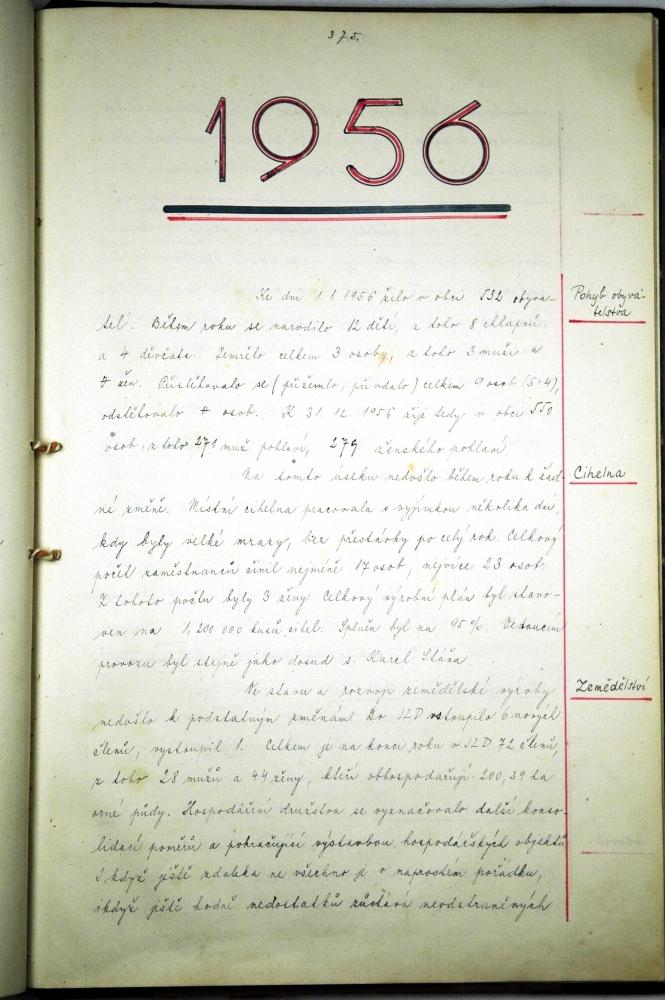 375.
1956
Ke dni 1.1.1956 žilo v obci 532 obyva-
tel. Během roku se narodilo 12 dětí, z toho 8 chlapců
a 4 děvčata. Zemřelo celkem 3 osoby, z toho 3 muži a
žen. Přistěhovalo se (přiženilo, přivdalo) celkem 9 osob (5+4),
odstěhovalo osob. K 31.12.1956 žije tedy v obci 550
osob, z toho 271 muž. pohlaví, 279 ženského pohlaví
Pohyb obyva-
telstva
Na tomto úseku nedošlo během roku k žád-
né změně. Místní cihelna pracovala s vyjímkou několika dní,
kdy byly velké mrazy, bez přestávky po celý rok. Celkový
počet zaměstnanců činil nejméně 17 osob, nejvíce 23 osob.
Z tohoto počtu byly 3 ženy. Celkový výrobní plán byl stano-
ven na 1,200.000 kusů cihel. Splněn byl na 95%. Vedoucím
provozu byl stejně jako dosud s. Karel
Cihelna
Ve stavu a rozvoji zemědělské výroby
nedošlo k podstatným změnám. Do JZD vstoupilo 6 nových
členů, vystoupil 1. Celkem je na konci roku v JZD 72 členů,
z toho 28 mužů a 44 ženy, kteří obhospodařují 200,39 ha
orné půdy. Hospodaření družstva se vyznačovalo další konso-
lidací poměrů a pokračující výstavbou hospodářských objektů.
I když ještě zdaleka ne všechno je v naprostém pořádku,
ikdyž ještě hodně nedostatků zůstává neodstraněných
Zemědělství